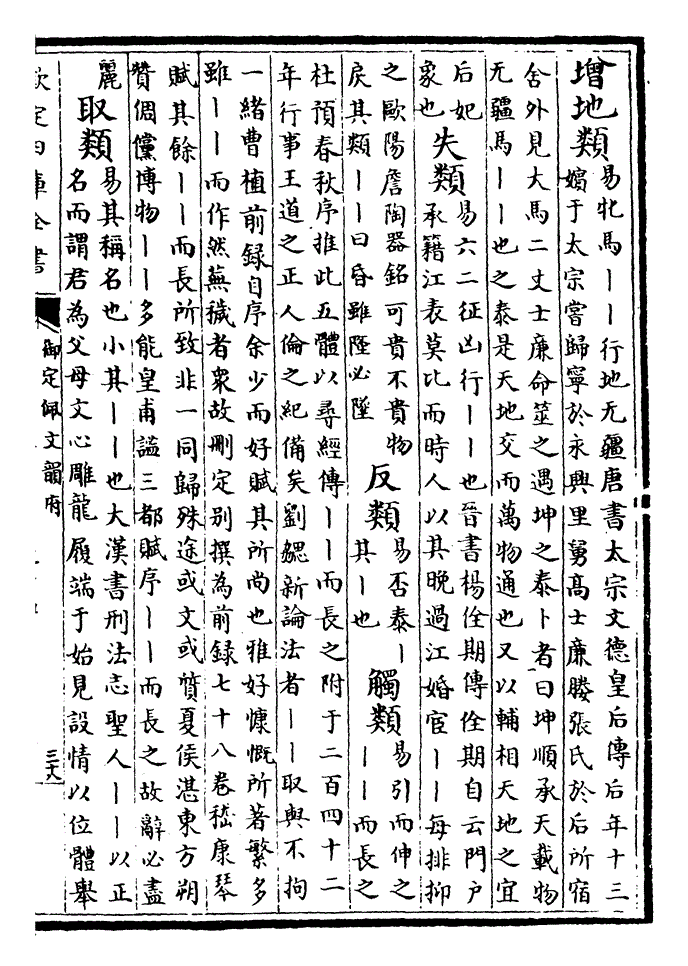 增地類
易牝馬丨丨行地无疆唐書太宗文德皇后傳后年十三
嬪于太宗嘗歸寧於永興里舅髙士廉媵張氏於后所宿
舍外見大馬二丈士廉命筮之遇坤之泰卜者曰坤順承天載物
无疆馬丨丨也之泰是天地交而萬物通也又以輔相天地之宜
后妃
象也
失類
易六二征凶行丨丨也晉書楊佺期傳佺期自云門戶
承籍江表莫比而時人以其晚過江婚宦丨丨每排抑
之歐陽詹陶器銘可貴不貴物
戾其類丨丨曰昏雖陞必墜
反類
易否泰丨
其丨也
觸類
易引而伸之
丨丨而長之
杜預春秋序推此五體以尋經傳丨丨而長之附于二百四十二
年行事王道之正人倫之紀備矣劉勰新論法者丨丨取與不拘
一緒曹植前録自序余少而好賦其所尚也雅好慷慨所著繁多
雖丨丨而作然蕪穢者衆故刪定别撰為前録七十八卷嵇康琴
賦其餘丨丨而長所致非一同歸殊途或文或質夏侯湛東方朔
賛倜儻博物丨丨多能皇甫謐三都賦序丨丨而長之故辭必盡
麗
取類
易其稱名也小其丨丨也大漢書刑法志聖人丨丨以正
名而謂君為父母文心雕龍履端于始見設情以位體舉
欽定四庫全書
御定佩文韻府